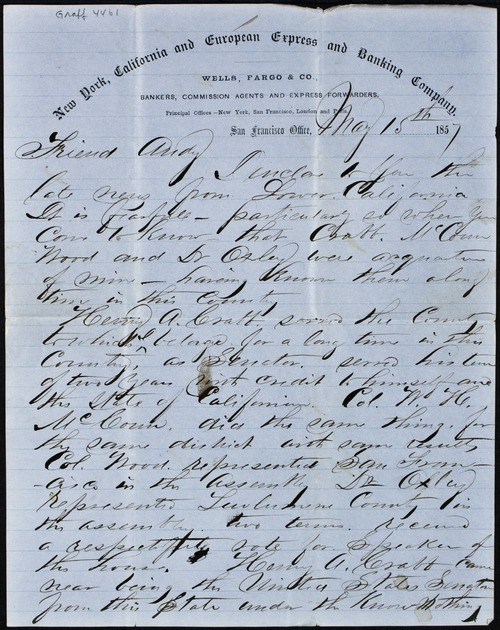 Graff 4461
New York, California and European Express and Banking Company.
WELLS, FARGO & CO.,
BANKERS, COMMISSION AGENTS AND EXPRESS FORWARDERS.
Principal Offices—New York, San Francisco, London and Paris.
San Francisco Office, May 15th 1857
Friend Andy
I enclose to you the
late news from Lower California
It is frightful — particularly so when you
come to know that Crabb. McCoun
Wood and Dr Oxley were acquaintances
of mine — having known them a long
time in this County
Henry A. Crabb served the County
to which I belong for a long time in this
County as Senator. served his term
of two years with credit to himself and
the State of California. Col. W. H.
McCoun. did the same thing. for
the same district with same results
Col. Wood. represented San Fran-
cisco in the assembly Dr Oxley
represented Tuolumne County in
the assembly two terms. received
a respectful vote for speaker of
the house. Henry A. Crabb came
near being the United States Senator
from this State under the Know Nothing